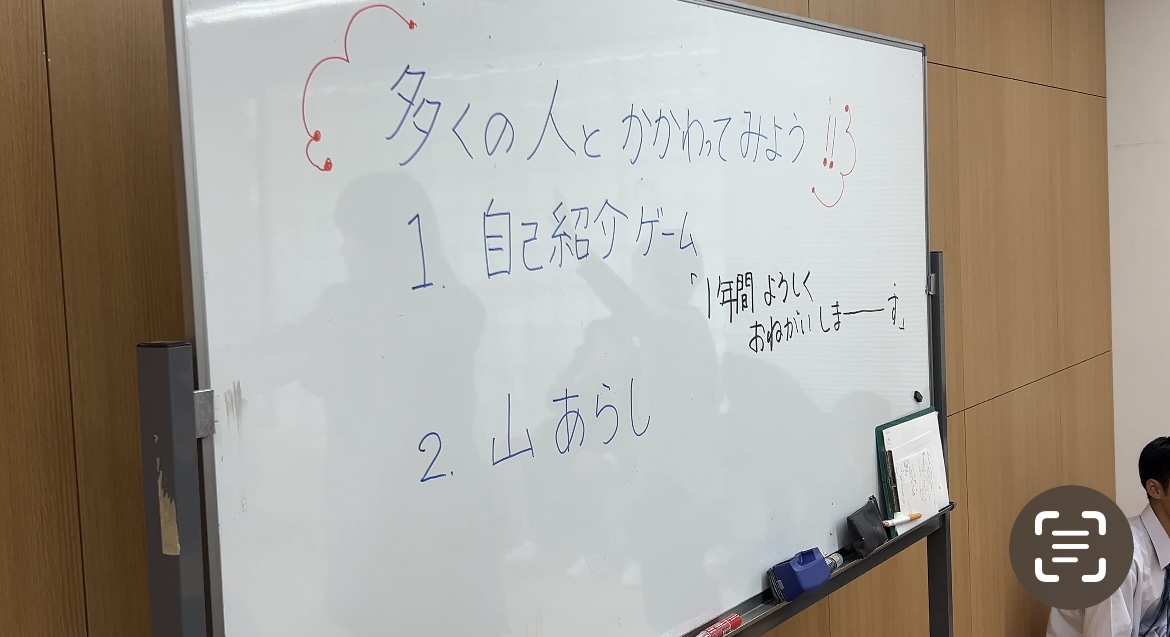 多くの人とかかわってみよう!!
1. 自己紹介ゲーム
「1年間よろしく
おねがいしま――す」
2. 山あらし